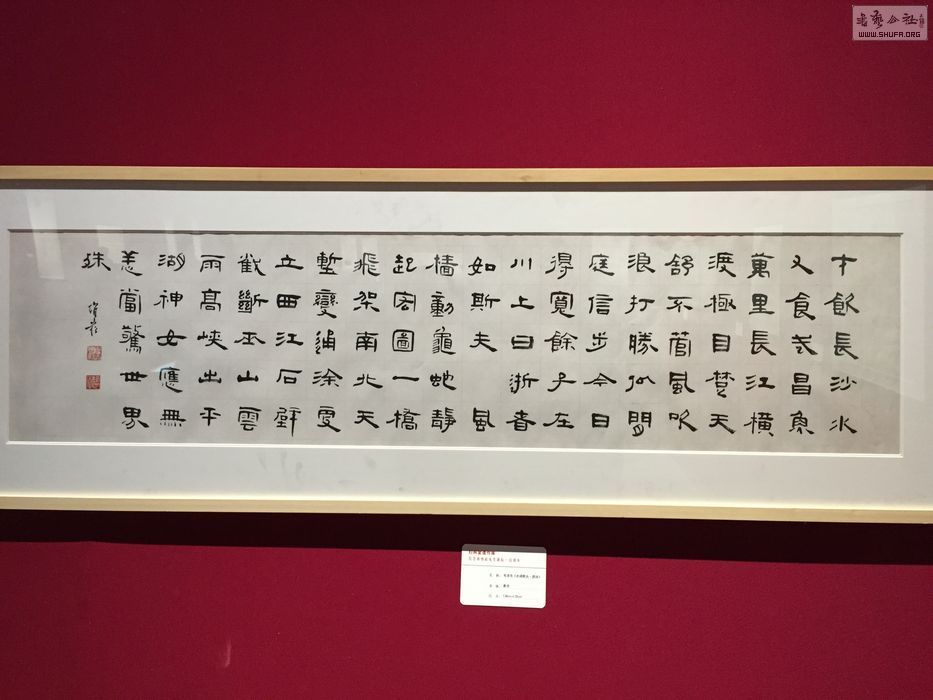 才飲長沙水
又食武昌魚
萬里長江橫
渡極目楚天
舒不管風吹
浪打勝似閒
庭信步今日
得寬餘子在
川上曰逝者
如斯夫 風
檣動龜蛇靜
起宏圖一橋
飛架南北天
塹變通塗更
立西江石壁
截斷巫山雲
雨高峽出平
湖神女應無
恙當驚世界
殊
書藝公社
WWW.SHUFA.ORG